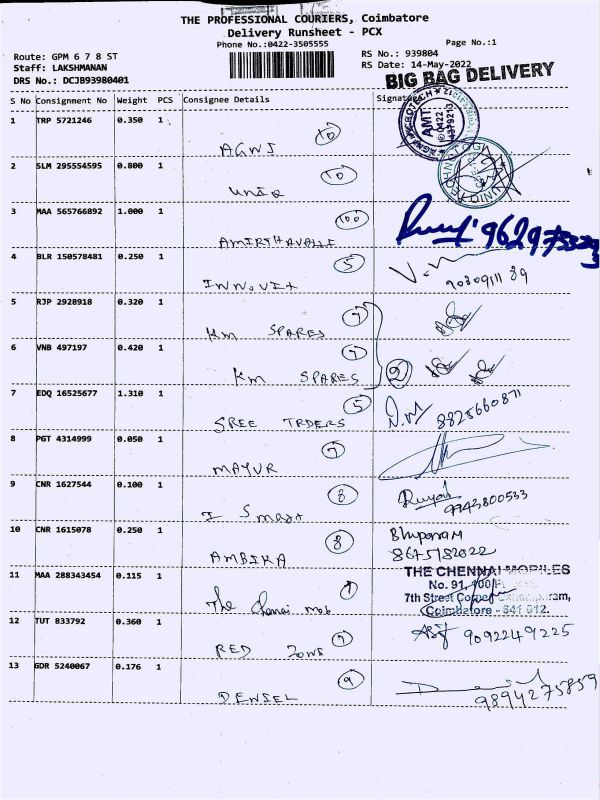 THE PROFESSIONAL COURIERS, Coimbatore
Delivery Runsheet - PCX
Phone No.:0422-3505555
Page No.:1
Route: GPM 6 7 8 ST
RS No.: 939804
Staff: LAKSHMANAN
RS Date: 14-May-2022
DRS No.: DCJB93980401
BIG BAG DELIVERY
S No Consignment No Weight PCS Consignee Details Signature
1 TRP 5721246 0.350 1
AGNI 10
AMT
0422
2 SLM 295554595 0.800 1
UNIQ 10
3 MAA 565766892 1.000 1
AMIRTHAVALLI 100
4 BLR 150578481 0.250 1
INNOVIX 5
5 RJP 2928918 0.320 1
KM SPARES 7
6 VNB 497197 0.420 1
KM SPARES 7 2
7 EDQ 16525677 1.310 1
SREE TRDERS 5 D.M 8825660871
8 PGT 4314999 0.050 1
MAYUR 7
9 CNR 1627544 0.100 1
I Smart 8 9943800533
10 CNR 1615078 0.250 1
AMBIKA 8 Bhuparam
8675182022
11 MAA 288343454 0.115 1
The Chennai mob 7
THE CHENNAI MOBILES
No. 91, 100
7th Street Corner
Coimbatore - 641 012.
12 TUT 833792 0.360 1
RED Zone 7 9092249225
13 GDR 5240067 0.176 1
DENSEL 9 9894275859